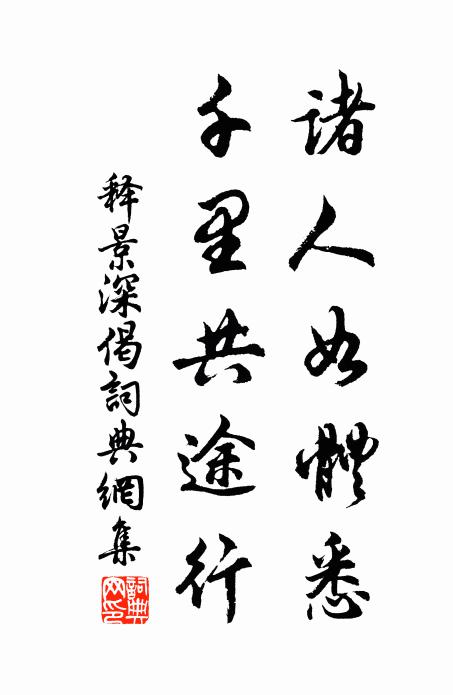 諸人如體悉
千里共途行
释景深偈詞典網集
詞典網印